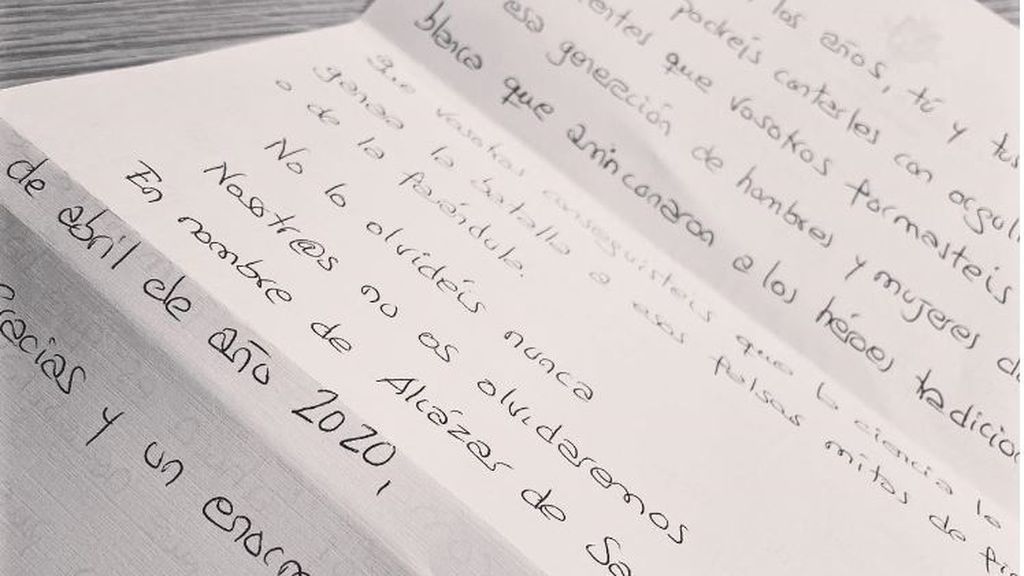 los años, tú y tus
podreis contarles con orgull
entes que vosotros formasteis
esa generación de hombres y mujeres d
blanca que arrinconaron a los héroes tradicio
Que vosotros conseguisteis que la ciencia le
la batalla a esos falsos mitos de
o de la farándula.
No lo olvidéis nunca
Nosotr@s no os olvidaremos
En nombre de Alcázar de Sa
de abril de año 2020,
Gracias y un enorm